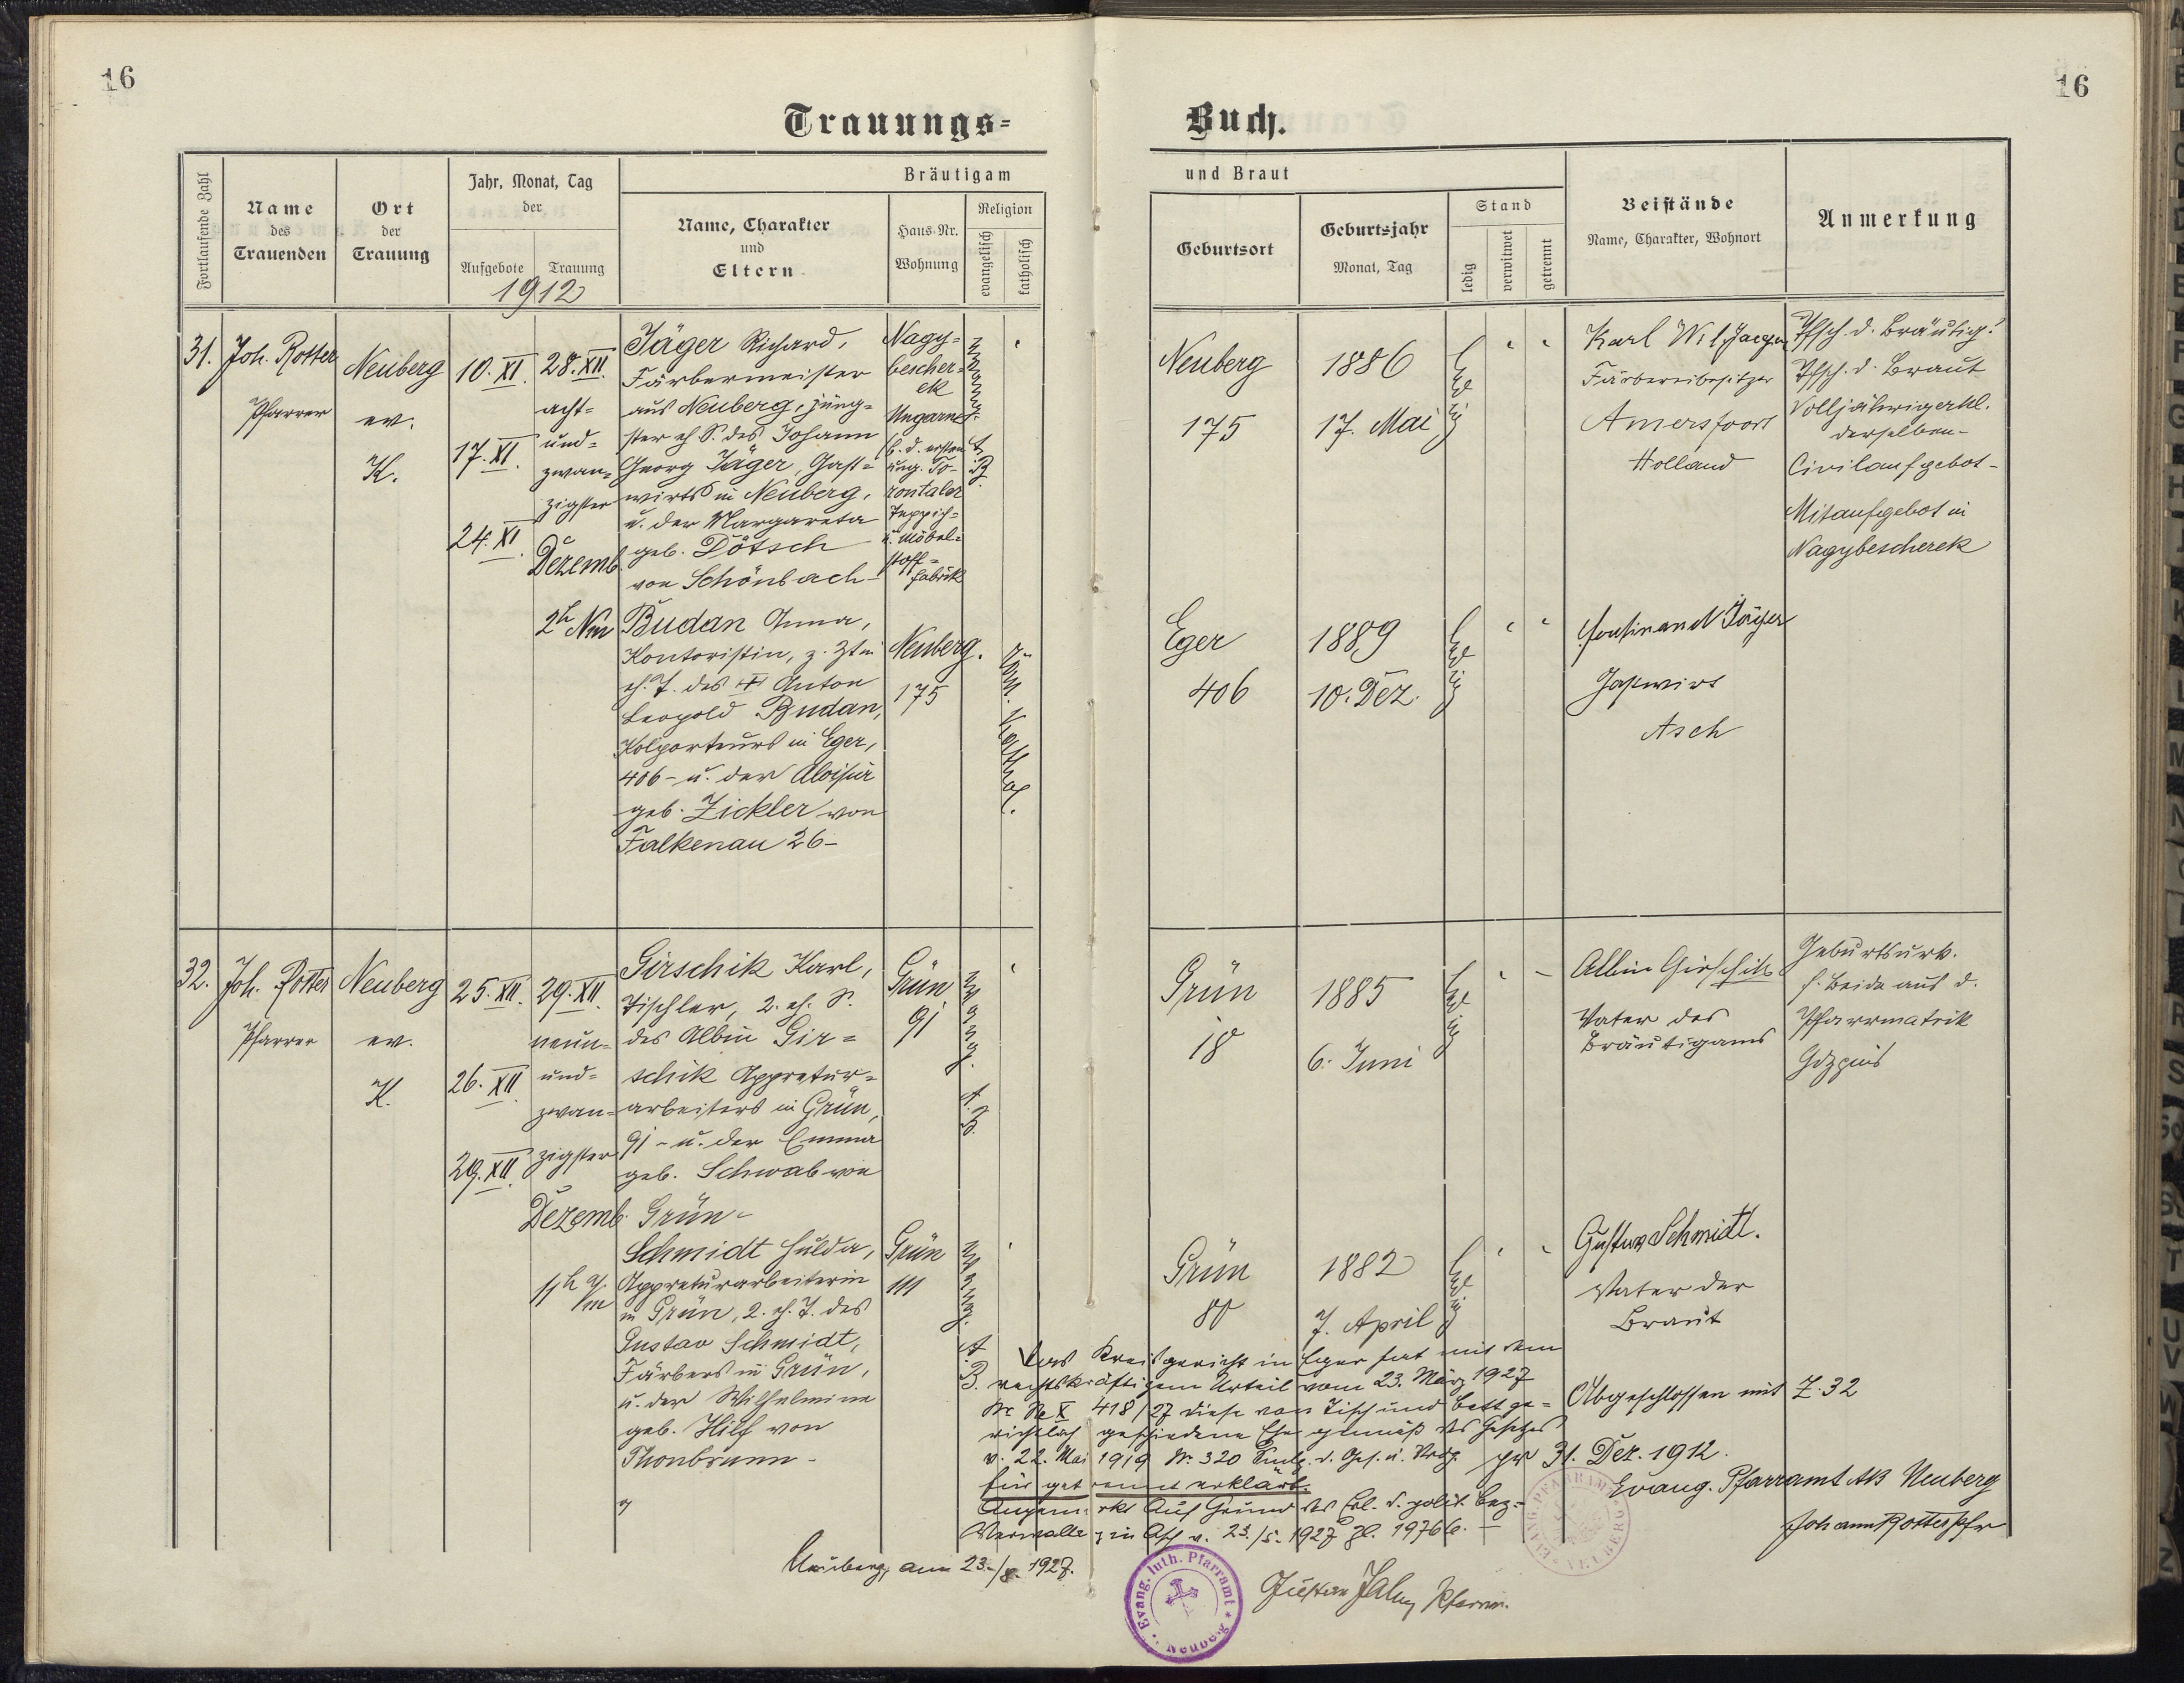 16
16
Trauungs-
Buch.
Fortlaufende Zahl
Name
des
Trauenden
Ort
der
Trauung
Jahr, Monat, Tag
der
Aufgebote
Trauung
1912
Bräutigam
Name, Charakter
und
Eltern
Haus-Nr.
Wohnung
Religion
evangelisch
katholisch
und Braut
Geburtsort
Geburtsjahr
Monat, Tag
Stand
ledig
verwitwet
getrennt
Beistände
Name, Charakter, Wohnort
Anmerkung
31.
Joh. Rotter
Pfarrer
Neuberg
ev.
K.
10. XI.
17. XI.
24. XI.
28. XII.
acht-
und-
zwan-
zigster
Dezemb.
2h Nm
Jäger Richard,
Färbermeister
aus Neuberg, jüng-
ster eh. S. des Johann
Georg Jäger, Gast-
wirts in Neuberg,
u. der Margareta
geb. Dötsch
von Schönbach-
Nagy-
becsker-
ek
Ungarn
(b. d. ersten
ung. To-
rontaler
Teppich-
u. Möbel-
stoff-
fabrik
Evang.
A. B.
Neuberg
175
1886
17. Mai
ledig
Färbereibesitzer
Amersfoort
Holland
Tfsch. d. Bräutig.
Tfsch. d. Braut
Volljährigerkl.
derselben-
Civilaufgebot-
Mitaufgebot in
Nagybecskerek
Budan Anna,
Kontoristin, z. Zt. in
eh. T. des Anton
Leopold Budan,
Kolporteurs in Eger,
406 - u. der Aloisia
geb. Zickler von
Falkenau 26-
Neuberg.
175
Röm. Kathol.
Eger
406
1889
10. Dez.
ledig
Ferdinand Jäger
Gastwirt
Asch
32.
Joh. Rotter
Pfarrer
Neuberg
ev.
K.
25. XII.
26. XII.
29. XII.
29. XII.
neun-
und-
zwan-
zigster
Dezemb.
11h
Girschik Karl,
Tischler, 2. eh. S.
des Albin Gir-
schik Appretur-
arbeiters in Grün,
91 - u. der Emma
geb. Schwab von
Grün-
Grün
91
Evang.
A. B.
Grün
18
1885
6. Juni
ledig
Albin Girschik
Vater des
Bräutigams
Geburtsurk.
f. Beide aus d.
Pfarrmatrik
Schmidt Hulda,
Appreturarbeiterin
in Grün, 2. eh. T. des
Gustav Schmidt,
Färbers in Grün,
u. der Wilhelmine
geb. Hilf von
Thonbrunn-
Grün
111
Evang.
A.
B.
Grün
80
1882
7. April
ledig
Gustav Schmidt.
Vater der
Braut
Das Kreisgericht in Eger hat mit dem
rechtskräftigem Urteil vom 23. März 1927
418/27 diese von Tisch und Bett ge-
richtlich geschiedene Ehe gemäß des Gesetzes
v. 22. Mai 1919 Nr. 320 Smlg. d. Ges. u. Vrdg.
für getrennt erklärt.
Angemerkt Auf Grund des Erl. d. polit. Bez.-
Verwaltg in Asch v. 23./5. 1927 Zl. 19766. -
Neuberg, am 23./8. 1927.
Abgeschlossen mit Z. 32
31. Dez. 1912.
Evang. Pfarramt AB Neuberg
Johann Rotter Pfr
Evang. luth. Pfarramt * Neuberg
EVANG. PFARRAMT NEUBERG